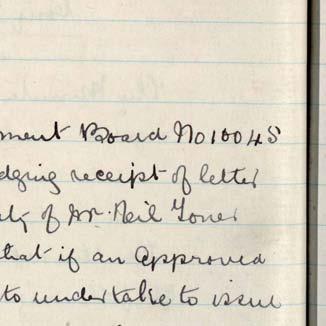 ment Board No 10045
dging receipt of letter
of Mr. Neil Toner
that if an approved
to undertake to issue